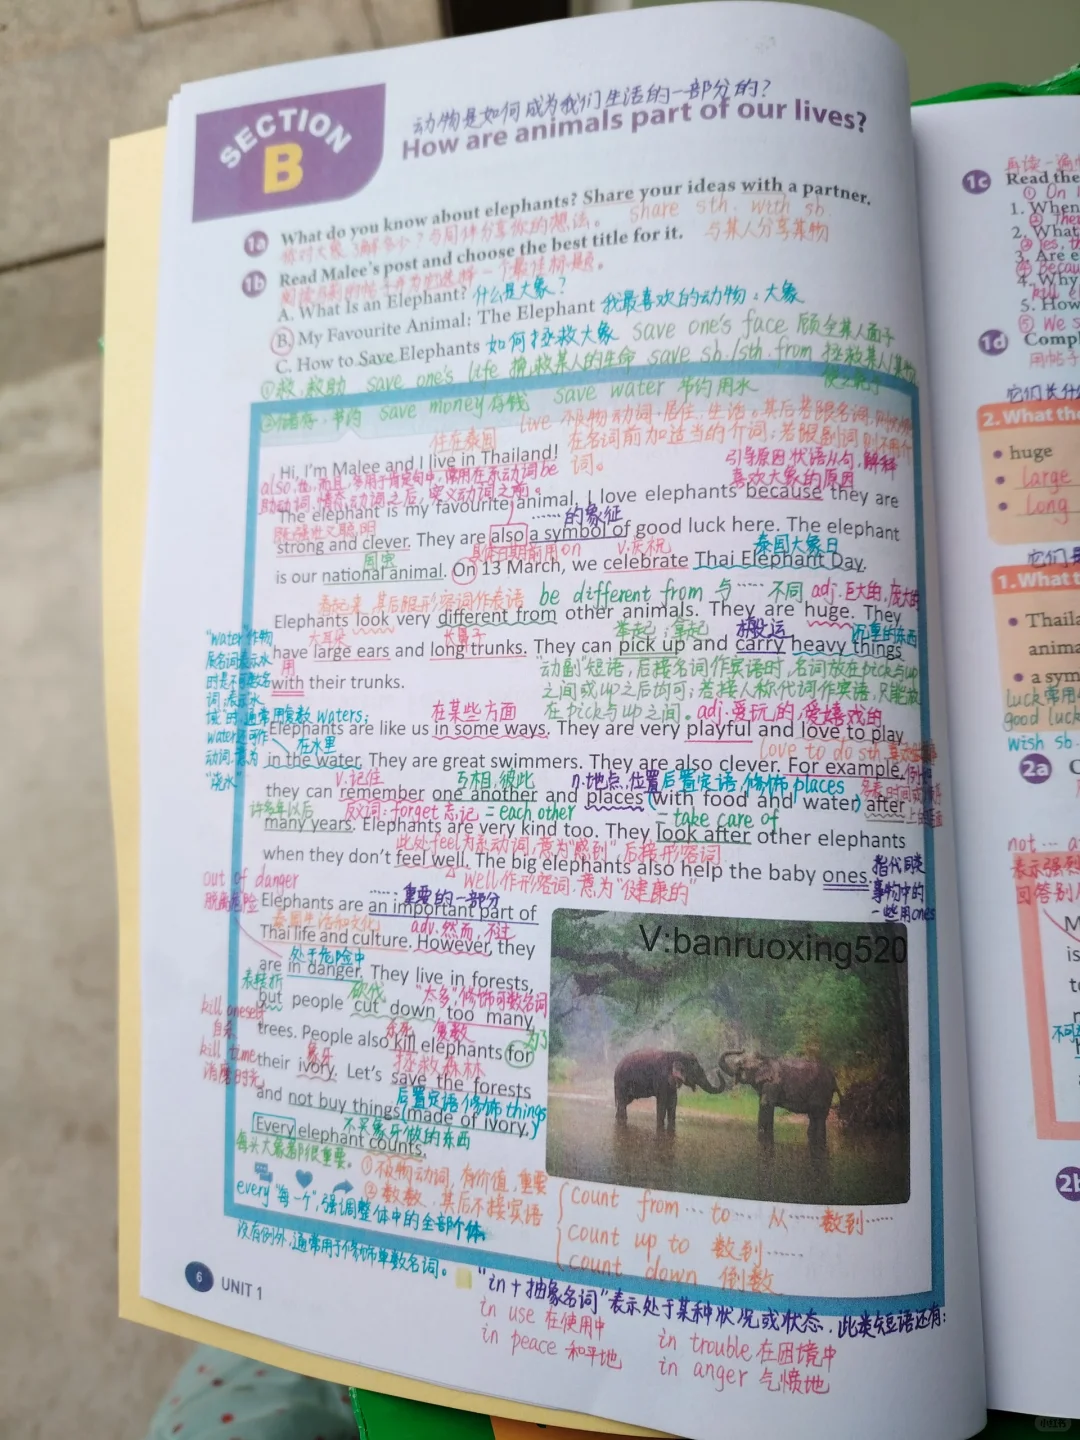 SECTION
B
动物是如何成为我们生活的一部分的?
How are animals part of our lives?
1a What do you know about elephants? Share your ideas with a partner.
share sth. with sb.
与某人分享某物
1b Read Malee's post and choose the best title for it.
A. What Is an Elephant? 什么是大象?
B. My Favourite Animal: The Elephant 我最喜欢的动物:大象
C. How to Save Elephants 如何拯救大象 save one's face 顾全某人面子
①救,救助 save one's life 拯救某人的生命 save sb./sth. from 拯救某人/某物
save money 存钱 save water 节约用水
live 不及物动词·居住,生活。其后若跟名词,
住在泰国 在名词前加适当的介词;若跟副词则不用介
词。
Hi, I'm Malee and I live in Thailand!
引导原因状语从句,解释
喜欢大象的原因
also,也,而且,多用于肯定句中,常用在系动词be
助动词,情态动词之后,实义动词之前。
The elephant is my favourite animal. I love elephants because they are
既强壮又聪明 ……的象征
strong and clever. They are also a symbol of good luck here. The elephant
国宝 具体日期前用on v.庆祝 泰国大象日
is our national animal. On 13 March, we celebrate Thai Elephant Day.
看起来,其后跟形容词作表语 be different from 与……不同 adj.巨大的,庞大的
Elephants look very different from other animals. They are huge. They
大耳朵 长鼻子 举起;拿起 搬运 沉重的东西
have large ears and long trunks. They can pick up and carry heavy things
用
with their trunks.
"动副"短语,后接名词作宾语时,名词放在pick与up
之间或up之后均可;若接人称代词作宾语,只能放
在pick与up之间。
"water"作物
质名词表示水
时是不可数名
词;表示水
域时,通常用复数 waters;
water还可作
动词,意为
"浇水"
在某些方面 adj.爱玩的,爱嬉戏的
Elephants are like us in some ways. They are very playful and love to play
在水里 love to do sth.
in the water. They are great swimmers. They are also clever. For example,
v.记住 互相,彼此 n.地点,位置 后置定语,修饰places
they can remember one another and places (with food and water) after
许多年以后 反义词:forget 忘记 = each other = take care of
many years. Elephants are very kind too. They look after other elephants
此处feel为系动词,意为"感到" 后接形容词
when they don't feel well. The big elephants also help the baby ones.
well作形容词,意为"健康的"
指代同类
事物中的
一些用ones
out of danger
脱离危险
……重要的一部分
Elephants are an important part of
泰国生活和文化 adv.然而,不过
Thai life and culture. However, they
处于危险中
are in danger. They live in forests,
表转折 砍伐 "太多",修饰可数名词
but people cut down too many
kill oneself
自杀
杀死 复数 为了
trees. People also kill elephants for
kill time
消磨时光
象牙 拯救森林
their ivory. Let's save the forests
后置定语 修饰things
and not buy things (made of ivory.)
不买象牙做的东西
Every elephant counts.
每头大象都很重要。
①不及物动词,有价值,重要
②数数,其后不接宾语
every "每一个",强调整体中的全部个体,
没有例外,通常用于修饰单数名词。
V:banruoxing520
count from … to … 从……数到……
count up to 数到……
count down 倒数
"in+抽象名词"表示处于某种状况或状态,此类短语还有:
in use 在使用中
in trouble 在困境中
in peace 和平地
in anger 气愤地
6 UNIT 1
1c
Read the
1. When
2. What
3. Are e
4. Why
5. How
1d Compl
2. What the
huge
large
long
1. What t
Thaila
anima
a sym
good luck
wish sb.
2a
2b